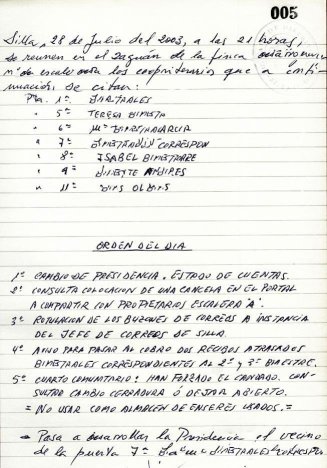 005
Silla, 28 de Julio del 2003, a las 21 horas,
se reunen en el zaguán de la finca
nº de escalera los copropietarios que a conti-
nuación, se citan:
Pta. 1ª
" 5ª TERESA
" 6ª Mª
" 7ª
" 8ª ISABEL
" 9ª
" 11ª
ORDEN DEL DIA
1º CAMBIO DE PRESIDENCIA. ESTADO DE CUENTAS.
2º CONSULTA COLOCACION DE UNA CANCELA EN EL PORTAL
A COMPARTIR CON PROPIETARIOS ESCALERA 'A'.
3º ROTULACION DE LOS BUZONES DE CORREOS A INSTANCIA
DEL JEFE DE CORREOS DE SILLA.
4º AVISO PARA PASAR AL COBRO DOS RECIBOS ATRASADOS
BIMESTRALES CORRESPONDIENTES AL 2º y 3º BIMESTRE.
5º CUARTO COMUNITARIO: HAN FORZADO EL CANDADO. CON-
SULTAR CAMBIO CERRADURA Ó DEJAR ABIERTO.
= NO USAR COMO ALMACEN DE ENSERES USADOS. =
= Pasa a desarrollar la Presidencia el vecino
de la puerta 7ª